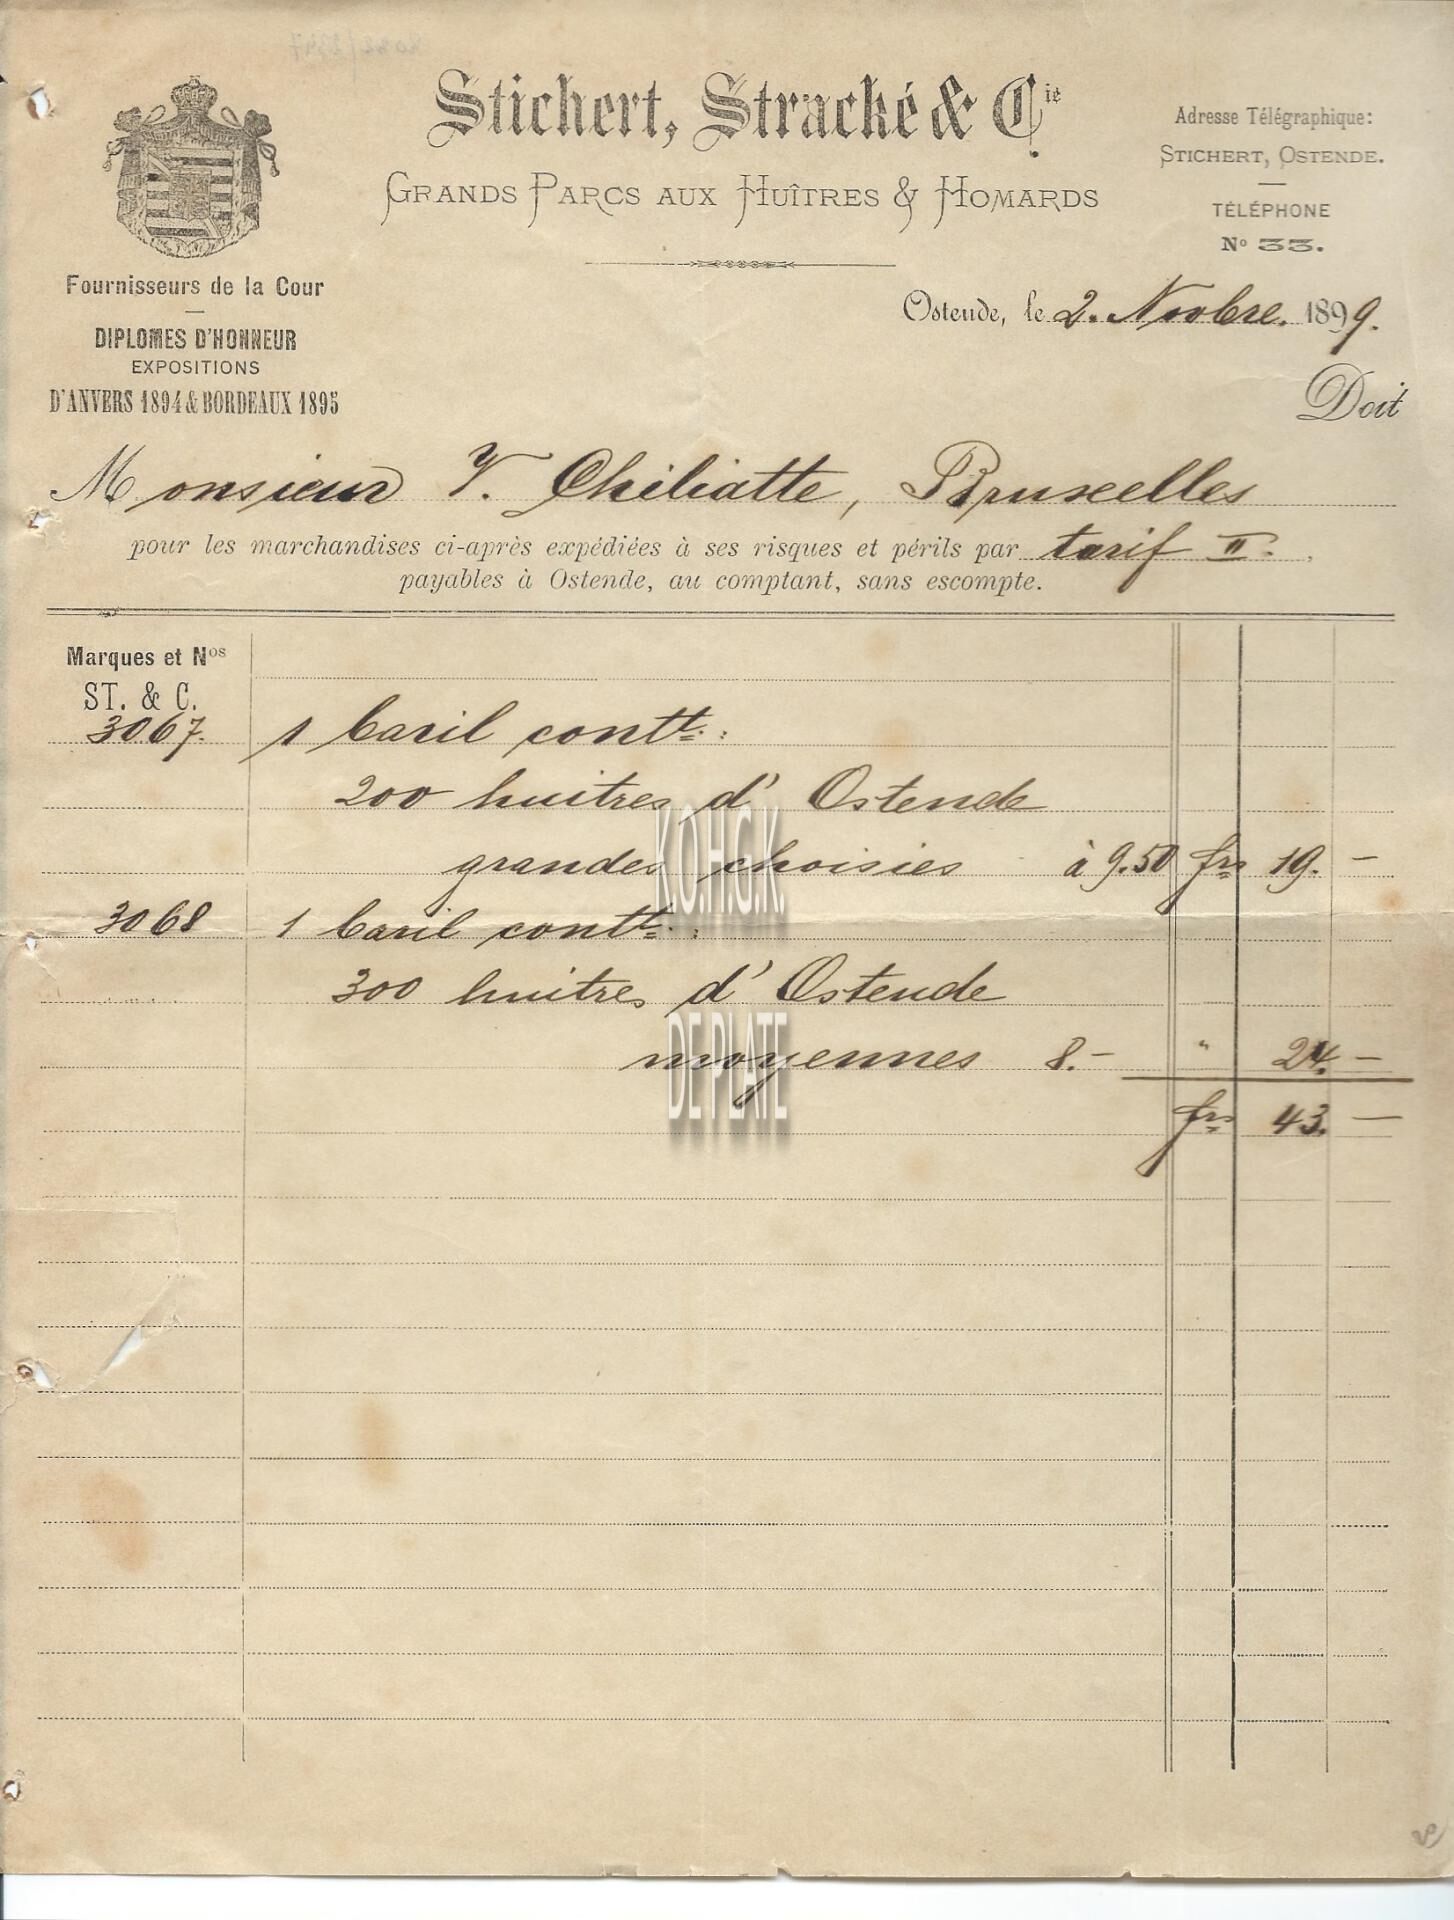 Stichert, Stracké & Cie.
GRANDS PARCS AUX HUÎTRES & HOMARDS
Adresse Télégraphique:
STICHERT, OSTENDE.
TÉLÉPHONE
No 33.
Fournisseurs de la Cour
DIPLOMES D'HONNEUR
EXPOSITIONS
D'ANVERS 1894 & BORDEAUX 1895
Ostende, le 2. Novbre. 1899.
Doit
Monsieur V. Chiliatte, Bruxelles
pour les marchandises ci-après expédiées à ses risques et périls par tarif II.,
payables à Ostende, au comptant, sans escompte.
Marques et Nos
ST. & C.
3067. 1 baril contt. :
200 huitres d'Ostende
grandes choisies à 9.50 frs 19. —
3068 1 baril contt. :
300 huitres d'Ostende
moyennes 8.— " 24. —
frs 43. —
K.O.H.G.K.
DE PLATE